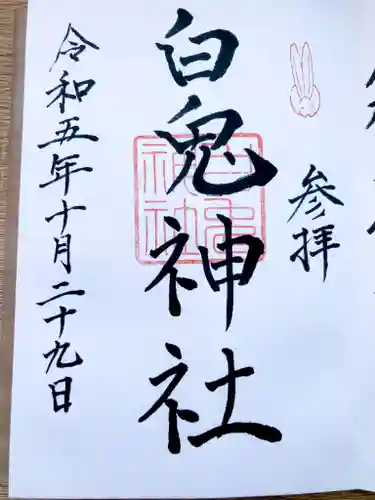 参拝
白兔神社
令和五年十月二十九日